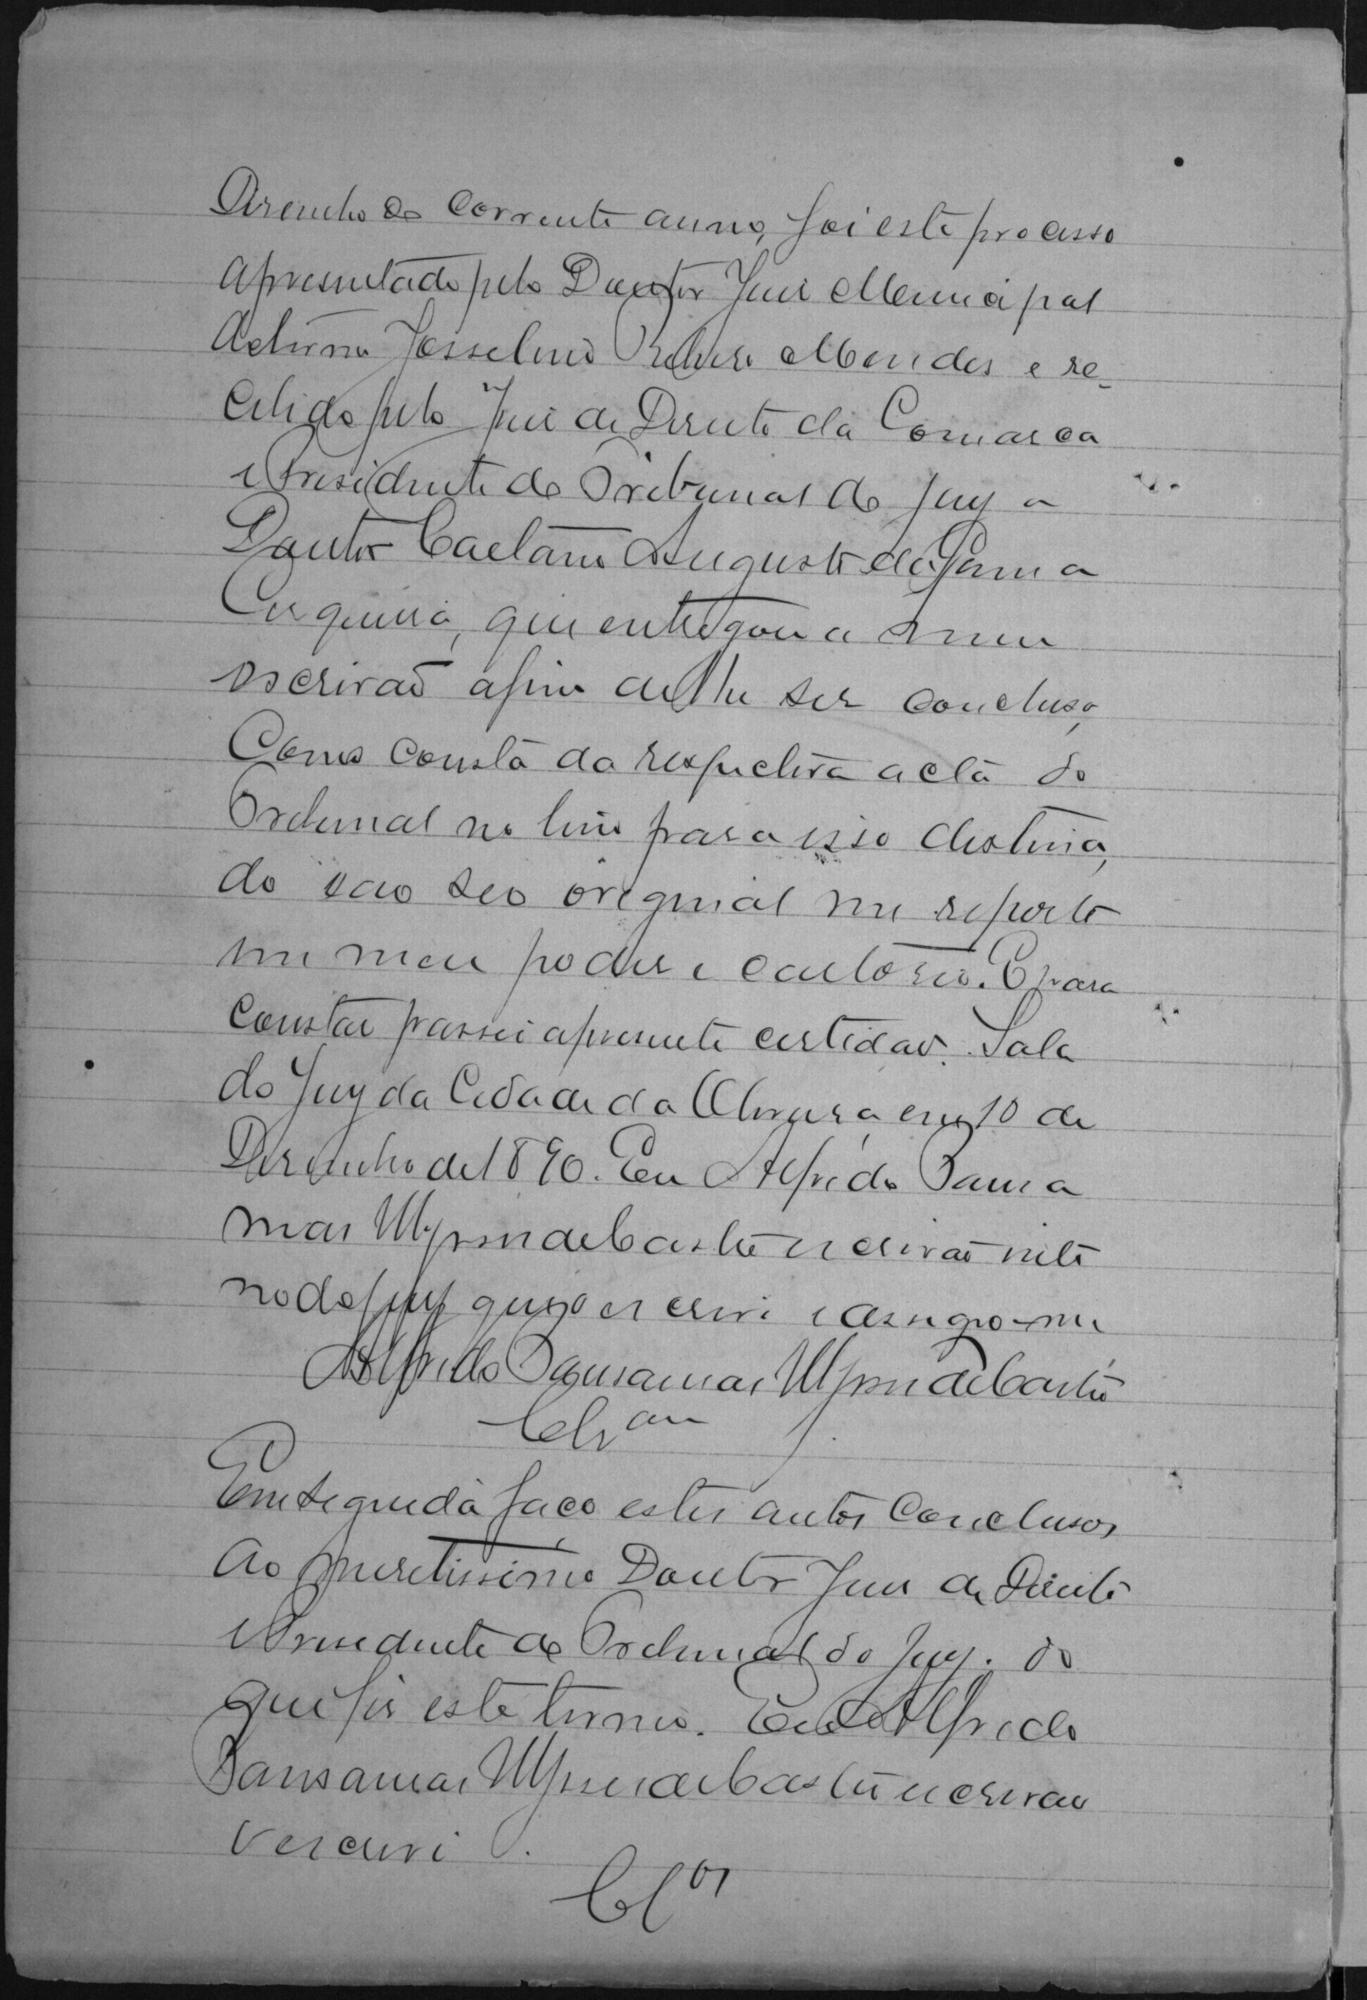 Dezembro do corrente anno, foi este processo
apresentado pelo Doutor Juiz Municipal
Josselino Ribeiro Mendes e re-
cebido pelo Juiz de Direito da Comarca
e Presidente do Tribunal do Jury o
Doutor Caetano Augusto da Gama
Cerqueira, que entregou a mim
escrivão afim de lhe ser concluso,
Como consta da respectiva acta do
Tribunal no livro para isso destina,
do e ao seo original me reporto
em meu poder e cartorio. E para
constar passei a presente certidão. Sala
do Jury da Cidade da Oliveira, em 10 de
Dezembro de 1890. Eu Alfredo
de Castro escrivão inte
rino do Jury que o escrevi e assigno-me
Alfredo de Castro
Clsam
Em seguida faço estes autos Conclusos
ao meretissimo Doutor Juiz de Direito
e Presidente do Tribunal do Jury. do
que fiz este termo. Eu Alfredo
de Castro escrivão
o escrevi.
Clos